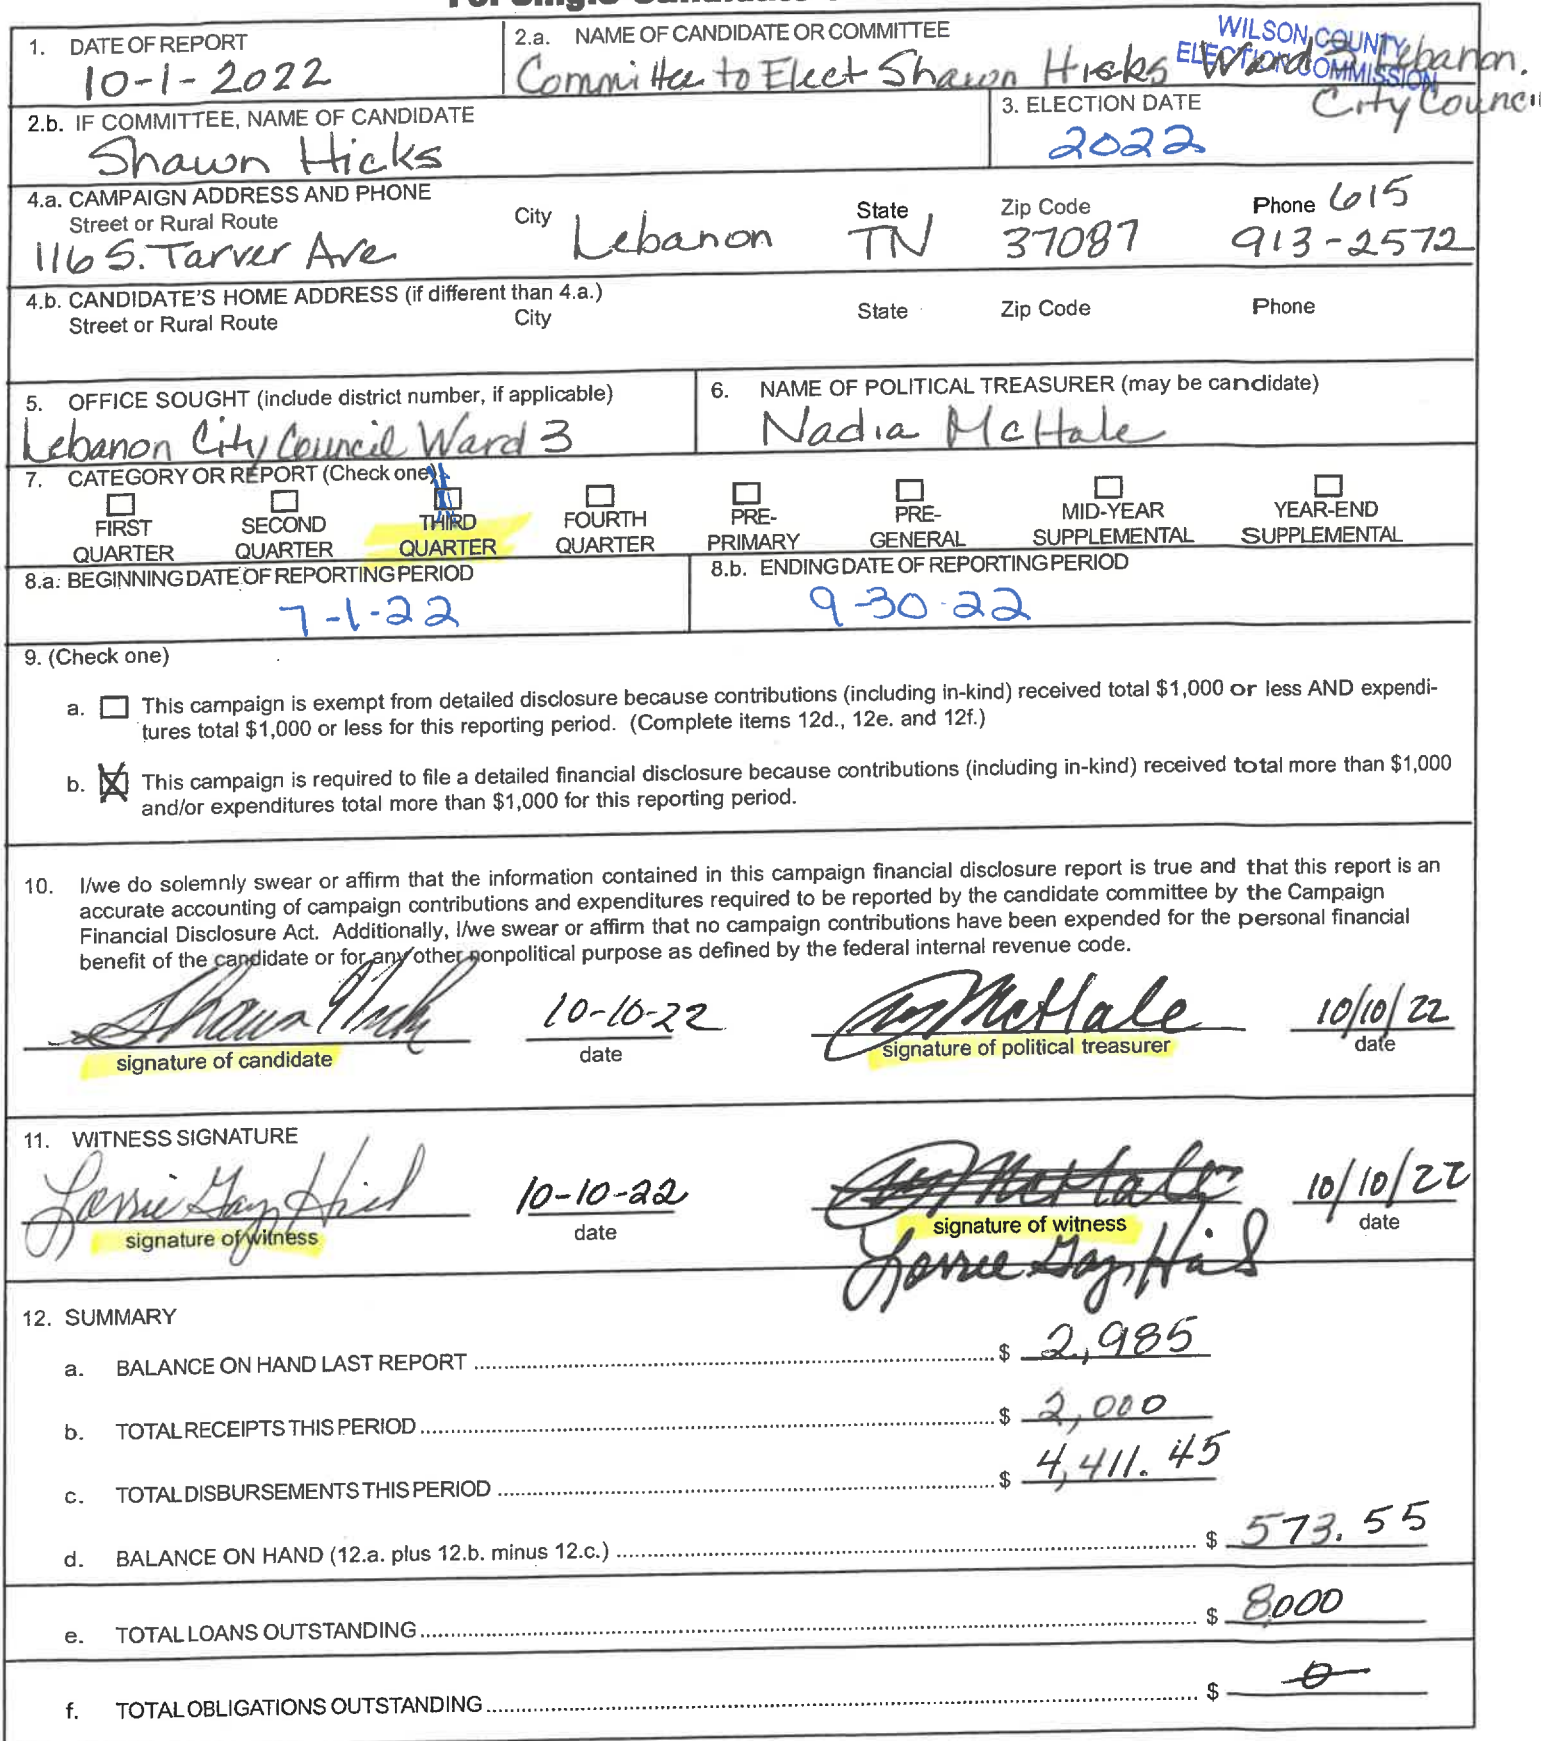 1. DATE OF REPORT
10-1-2022
2.a. NAME OF CANDIDATE OR COMMITTEE
Committee to Elect Shawn Hicks Ward 3 Lebanon.
City Council
WILSON COUNTY
ELECTION COMMISSION
2.b. IF COMMITTEE, NAME OF CANDIDATE
Shawn Hicks
3. ELECTION DATE
2022
4.a. CAMPAIGN ADDRESS AND PHONE
Street or Rural Route City State Zip Code Phone 615
116 S. Tarver Ave Lebanon TN 37087 913-2572
4.b. CANDIDATE'S HOME ADDRESS (if different than 4.a.)
Street or Rural Route City State Zip Code Phone
5. OFFICE SOUGHT (include district number, if applicable)
Lebanon City Council Ward 3
6. NAME OF POLITICAL TREASURER (may be candidate)
Nadia McHale
7. CATEGORY OR REPORT (Check one)
FIRST QUARTER
SECOND QUARTER
THIRD QUARTER
FOURTH QUARTER
PRE-PRIMARY
PRE-GENERAL
MID-YEAR SUPPLEMENTAL
YEAR-END SUPPLEMENTAL
8.a. BEGINNING DATE OF REPORTING PERIOD
7-1-22
8.b. ENDING DATE OF REPORTING PERIOD
9-30-22
9. (Check one)
a. This campaign is exempt from detailed disclosure because contributions (including in-kind) received total $1,000 or less AND expendi-
tures total $1,000 or less for this reporting period. (Complete items 12d., 12e. and 12f.)
b. X This campaign is required to file a detailed financial disclosure because contributions (including in-kind) received total more than $1,000
and/or expenditures total more than $1,000 for this reporting period.
10. I/we do solemnly swear or affirm that the information contained in this campaign financial disclosure report is true and that this report is an
accurate accounting of campaign contributions and expenditures required to be reported by the candidate committee by the Campaign
Financial Disclosure Act. Additionally, I/we swear or affirm that no campaign contributions have been expended for the personal financial
benefit of the candidate or for any other nonpolitical purpose as defined by the federal internal revenue code.
Shawn Hicks 10-10-22 McHale 10/10/22
signature of candidate date signature of political treasurer date
11. WITNESS SIGNATURE
Lorrie Gay 10-10-22 McHale 10/10/22
signature of witness date signature of witness date
Lorrie Gay
12. SUMMARY
a. BALANCE ON HAND LAST REPORT $ 2,985
b. TOTAL RECEIPTS THIS PERIOD $ 2,000
c. TOTAL DISBURSEMENTS THIS PERIOD $ 4,411.45
d. BALANCE ON HAND (12.a. plus 12.b. minus 12.c.) $ 573.55
e. TOTAL LOANS OUTSTANDING $ 8,000
f. TOTAL OBLIGATIONS OUTSTANDING $ 0